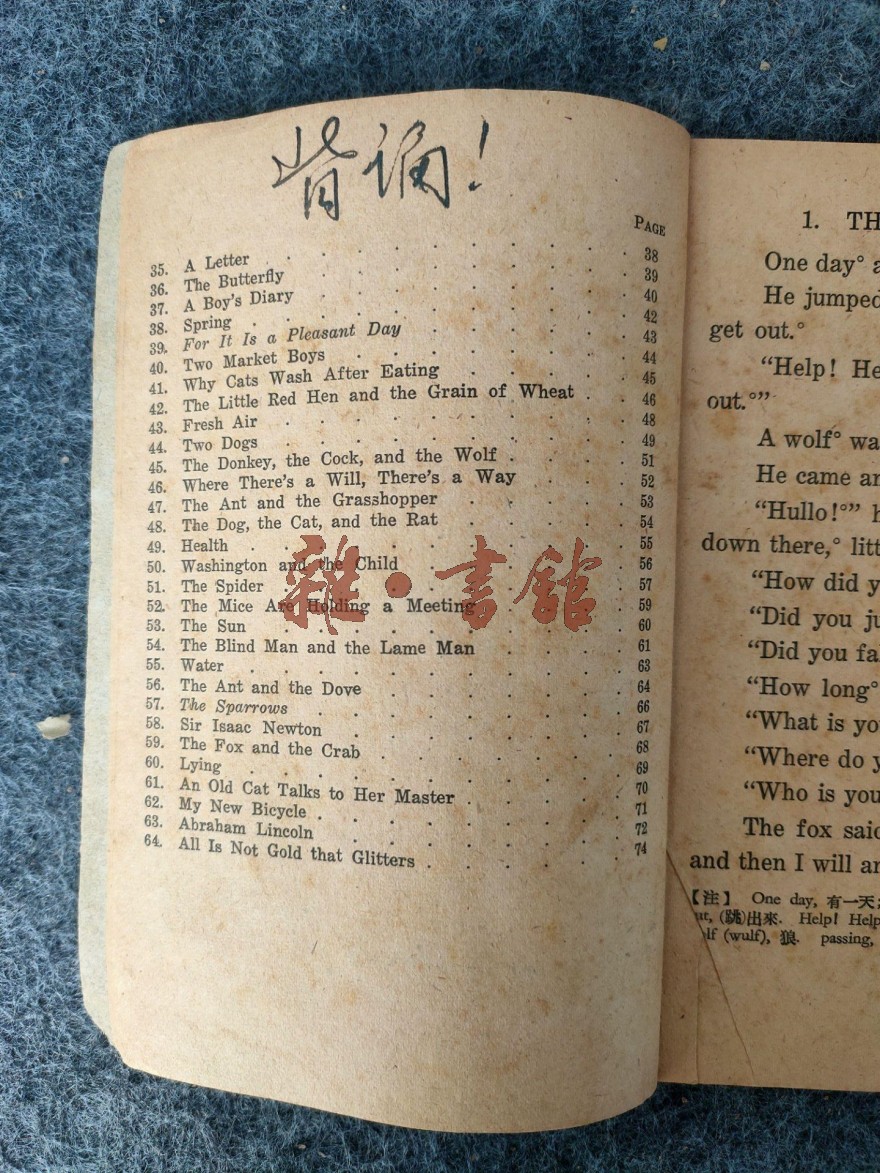 背诵!
PAGE
35. A Letter . . . . . . . . . 38
36. The Butterfly . . . . . . . . 39
37. A Boy's Diary . . . . . . . . 40
38. Spring . . . . . . . . . . 42
39. For It Is a Pleasant Day . . . . . 43
40. Two Market Boys . . . . . . . 44
41. Why Cats Wash After Eating . . . . . 45
42. The Little Red Hen and the Grain of Wheat . . 46
43. Fresh Air . . . . . . . . . 48
44. Two Dogs . . . . . . . . . 49
45. The Donkey, the Cock, and the Wolf . . . . 51
46. Where There's a Will, There's a Way . . . 52
47. The Ant and the Grasshopper . . . . . 53
48. The Dog, the Cat, and the Rat . . . . . 54
49. Health . . . . . . . . . . 55
50. Washington and the Child . . . . . . 56
51. The Spider . . . . . . . . . 57
52. The Mice Are Holding a Meeting . . . . 59
53. The Sun . . . . . . . . . 60
54. The Blind Man and the Lame Man . . . . 61
55. Water . . . . . . . . . . 63
56. The Ant and the Dove . . . . . . 64
57. The Sparrows . . . . . . . . 66
58. Sir Isaac Newton . . . . . . . 67
59. The Fox and the Crab . . . . . . 68
60. Lying . . . . . . . . . . 69
61. An Old Cat Talks to Her Master . . . . . 70
62. My New Bicycle . . . . . . . . 71
63. Abraham Lincoln . . . . . . . 72
64. All Is Not Gold that Glitters . . . . . 74
雜·書舘
1. TH
One day° a
He jumped
get out.°
"Help! He
out.°"
A wolf° wa
He came an
"Hullo!°" h
down there,° litt
"How did y
"Did you ju
"Did you fa
"How long°
"What is you
"Where do y
"Who is you
The fox said
and then I will an
【注】 One day, 有一天;
ut, (跳)出來. Help! Help
olf (wulf), 狼. passing,